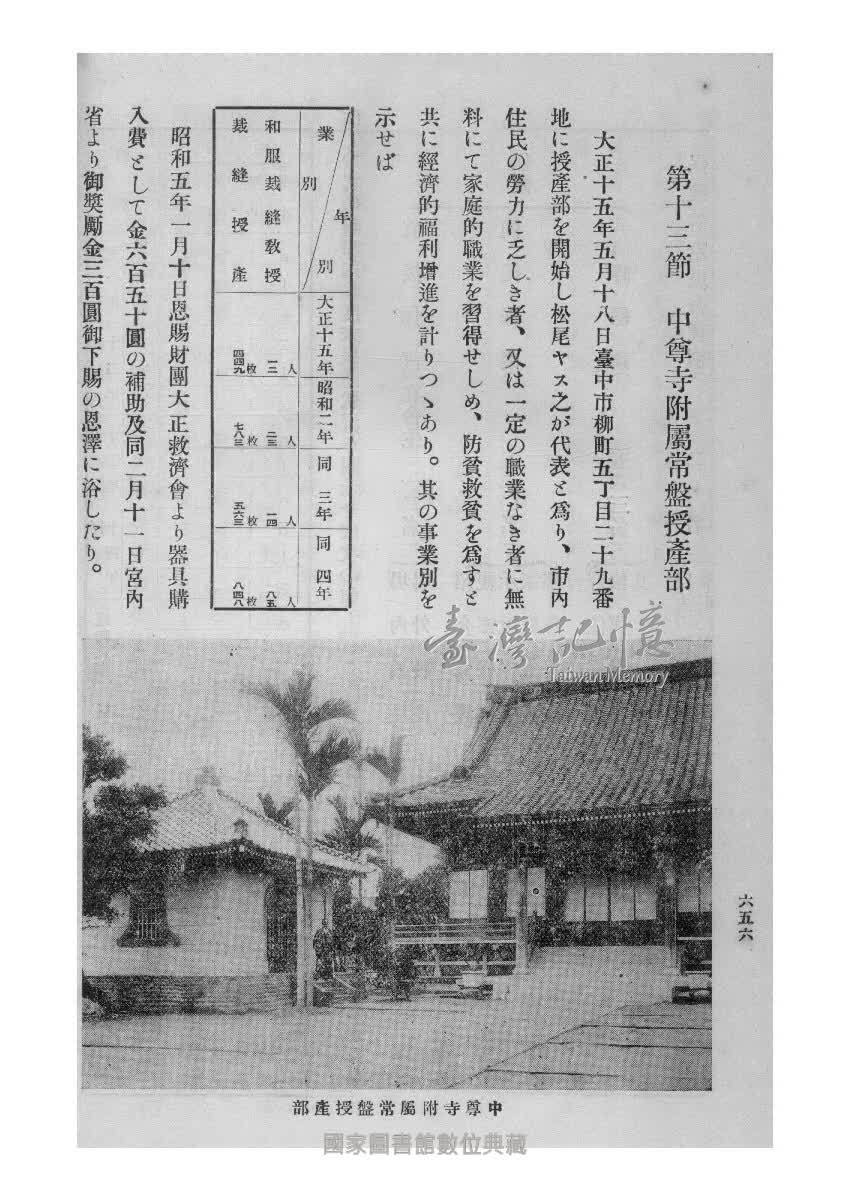 第十三節　中尊寺附屬常盤授產部
大正十五年五月十八日臺中市柳町五丁目二十九番
地に授產部を開始し松尾ヤス之が代表と爲り、市內
住民の勞力に乏しき者、又は一定の職業なき者に無
料にて家庭的職業を習得せしめ、防貧救貧を爲すと
共に經濟的福利增進を計りつゝあり。其の事業別を
示せば
業別　年別
大正十五年
昭和二年
同三年
同四年
和服裁縫敎授
一三人
二三人
一四人
八五人
裁縫授產
四四九枚
七八三枚
五六三枚
八四八枚
昭和五年一月十日恩賜財團大正救濟會より器具購
入費として金六百五十圓の補助及同二月十一日宮內
省より御獎勵金三百圓御下賜の恩澤に浴したり。
臺灣記憶
Taiwan Memory
六五六
中尊寺附屬常盤授產部
國家圖書館數位典藏